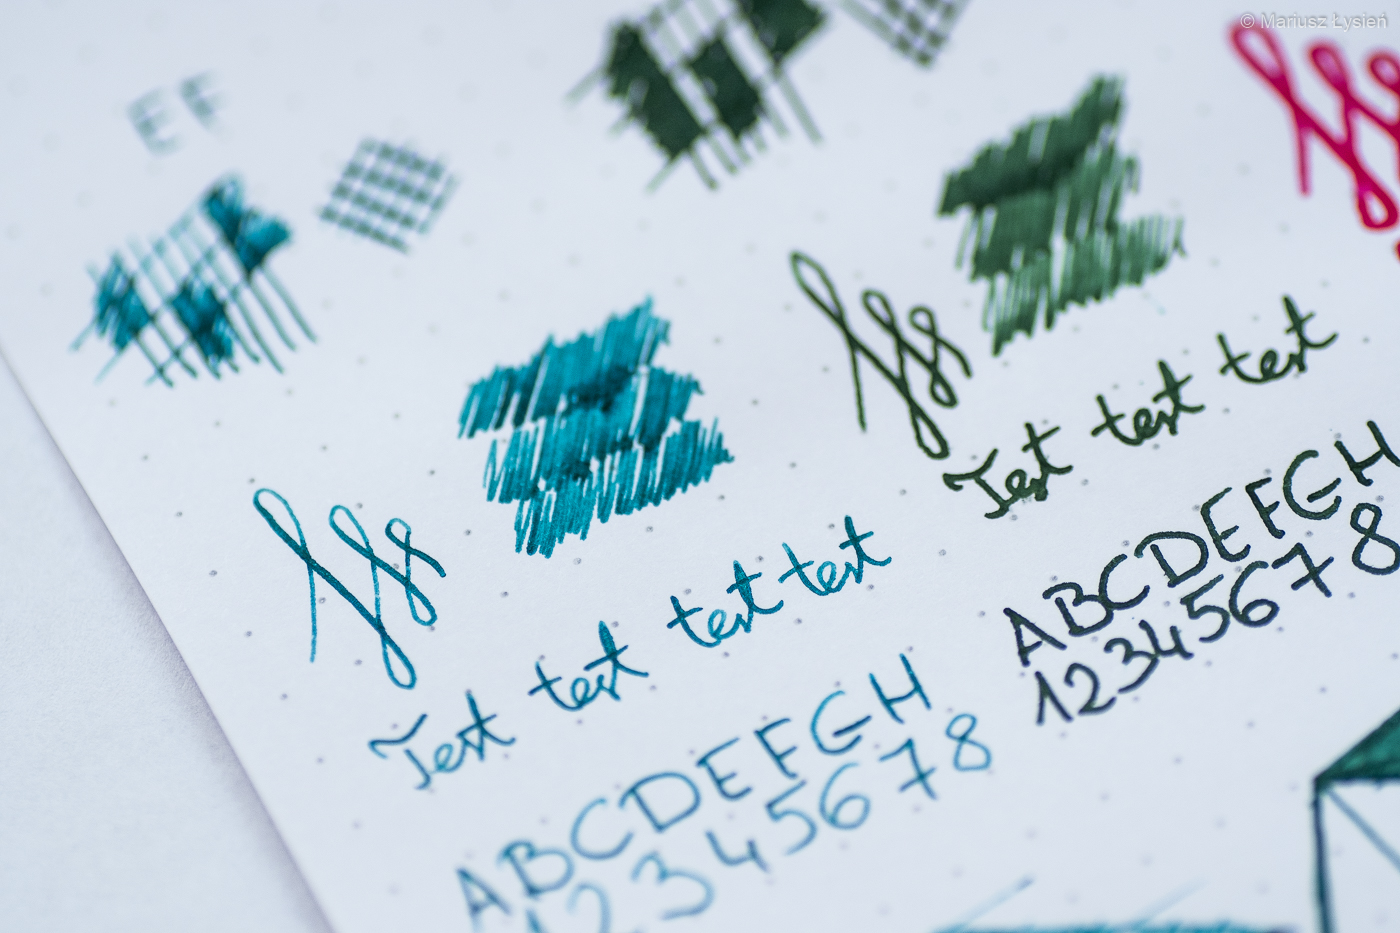 © Mariusz Łysień
EF
Test test test test
ABCDEFGH
12345678
Test test test
ABCDEFGH
12345678